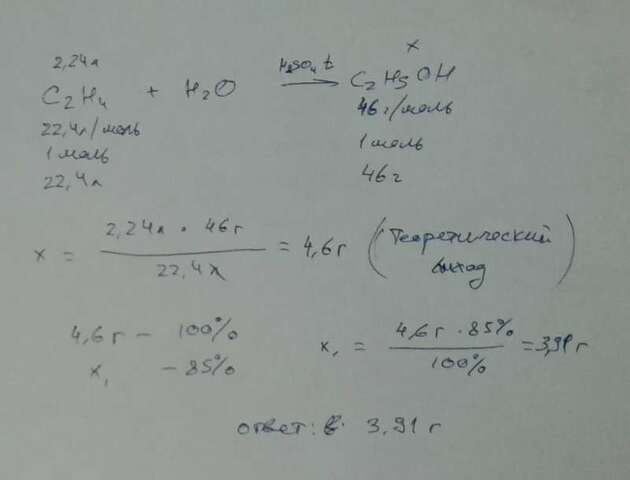 x
2,24л H2SO4 t
C2H4 + H2O → C2H5OH
22,4л/моль 46г/моль
1 моль 1 моль
22,4л 46г
x = 2,24л · 46г / 22,4л = 4,6г (Теоретический выход)
4,6г - 100%
x1 - 85%
x1 = 4,6г · 85% / 100% = 3,91г
ответ: 3,91 г